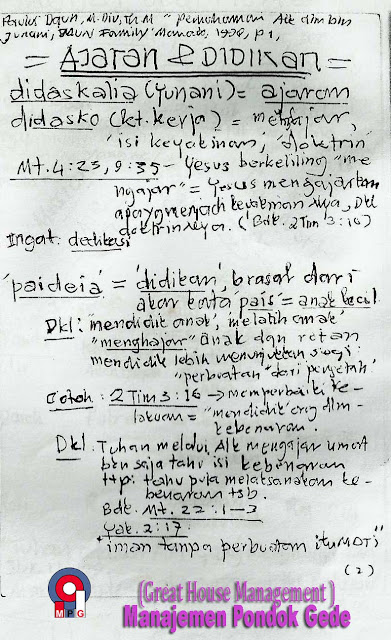 Paulus Daun, M.Div, Th.M "Pemahaman Alk dlm bhs
Junani, "Daun Family" Manado, 1998, p1,
= AJARAN & DIDIKAN =
didaskalia (Yunani) = ajaran
didasko (kt. kerja) = mengajar,
'isi keyakinan', 'doktrin'
Mt. 4:23, 9:35 - Yesus berkeliling "me
ngajar" = Yesus mengajarkan
apa yg menjadi keyakinan Nya, Dkl
doktrin Nya. (Bdk. 2 Tim 3:16)
Ingat: dedikasi
'paideia' = 'didikan', brasal dari
akar kata pais = anak kecil
Dkl: 'mendidik anak', melatih anak'
"menghajar" anak dgn rotan
mendidik lebih menunjukkan segi
"perbuatan" dari
Contoh: 2 Tim 3:16 → memperbaiki ke-
lakuan = "mendidik" org dlm
kebenaran.
Dkl. Tuhan melalui Alk mengajar umat
bkn saja tahu isi kebenaran
ttp: tahu pula melaksanakan ke-
benaran tsb.
Bdk. Mt. 22:1-3
Yak. 2:17
"iman tanpa perbuatan itu MATI"
(2)
MPG
(Great House Management)
Manajemen Pondok Gede